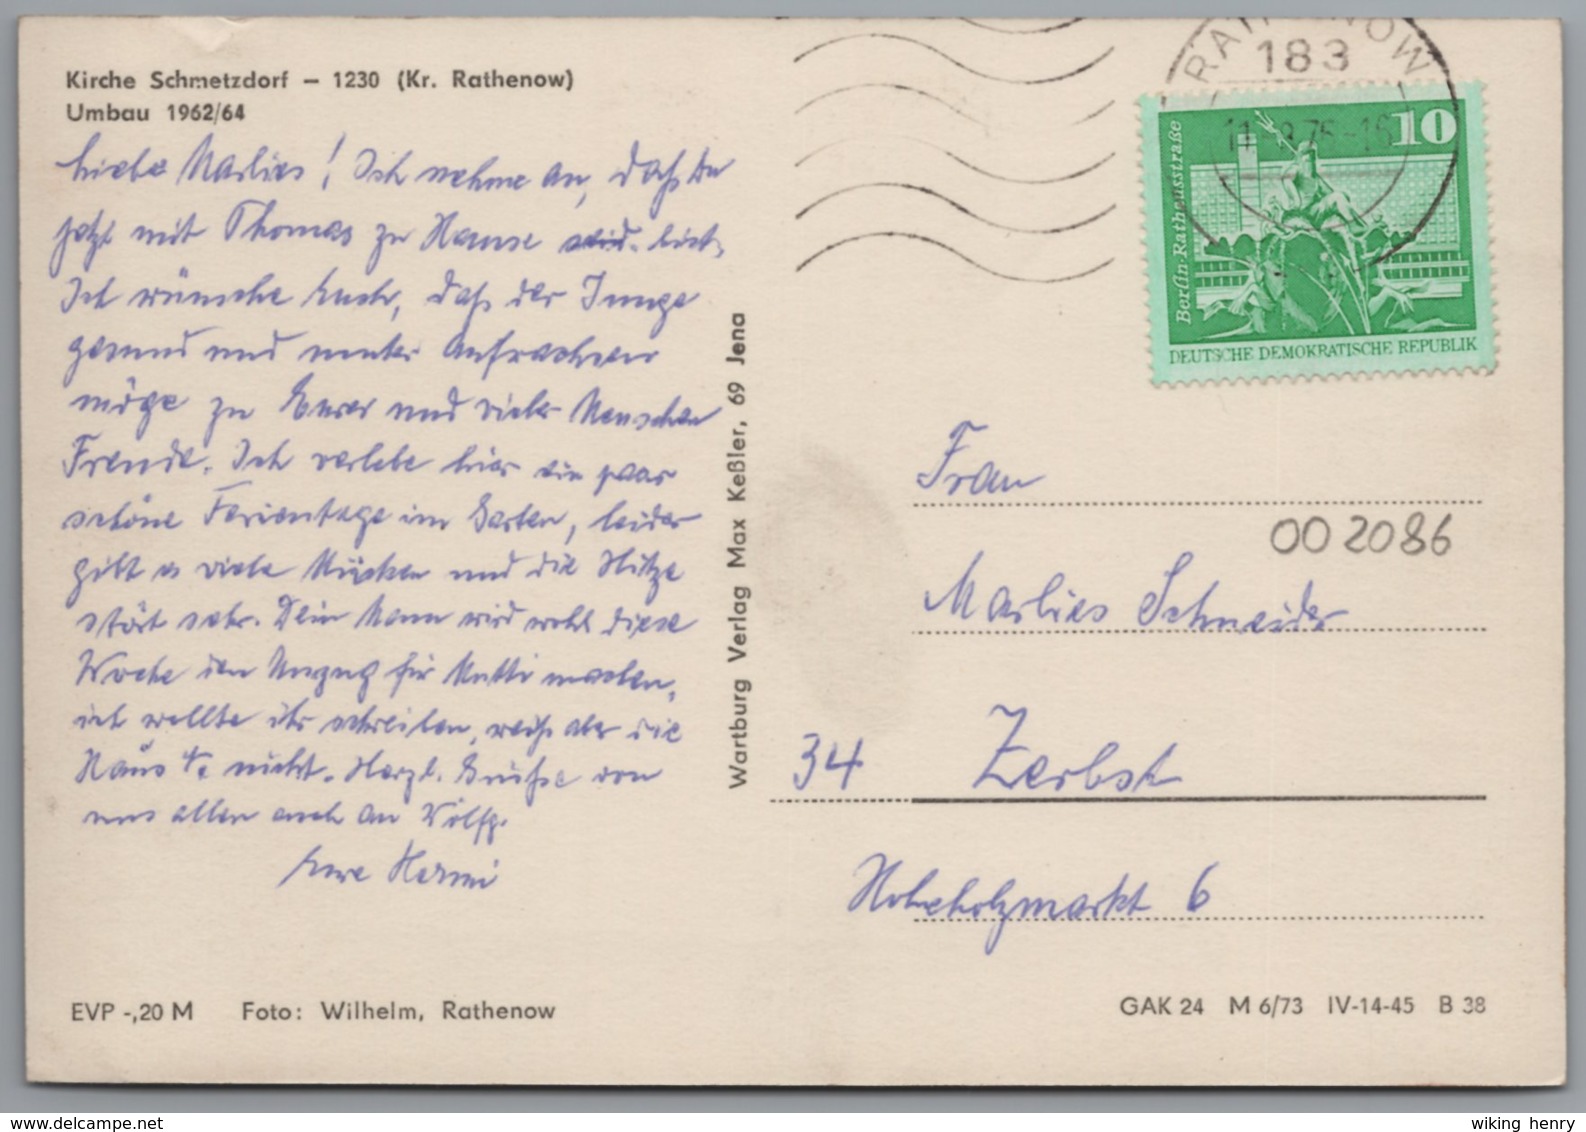 Kirche Schmetzdorf – 1230 (Kr. Rathenow)
Umbau 1962/64
Liebe Marlies! Ich nehme an, daß Du
jetzt mit Thomas zu Hause bist.
Ich wünsche Euch, daß der Junge
gesund und munter aufwachsen
möge zu Eurer und vieler Menschen
Freude. Ich verlebe hier ein paar
schöne Ferientage im Garten, leider
gibt es viele Mücken und die Hitze
stört sehr. Dein Mann wird wohl diese
Woche den Umzug für Mutti machen,
ich wollte ihr schreiben, weiß aber die
Haus Nr. nicht. Herzl. Grüße von
uns allen auch an Wolfg.
Eure Hermi
EVP -,20 M Foto: Wilhelm, Rathenow
Wartburg Verlag Max Keßler, 69 Jena
RATHENOW
183
10
Berlin·Rathausstraße
DEUTSCHE DEMOKRATISCHE REPUBLIK
Frau
002086
Marlies Schneider
34 Zerbst
Hoheholzmarkt 6
GAK 24 M 6/73 IV-14-45 B 38
www.delcampe.net
wiking henry